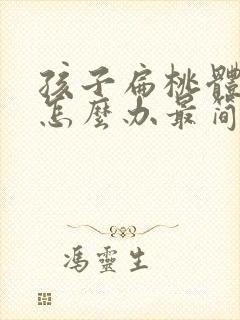 孩子扁桃體
怎麼办最简
馮靈生